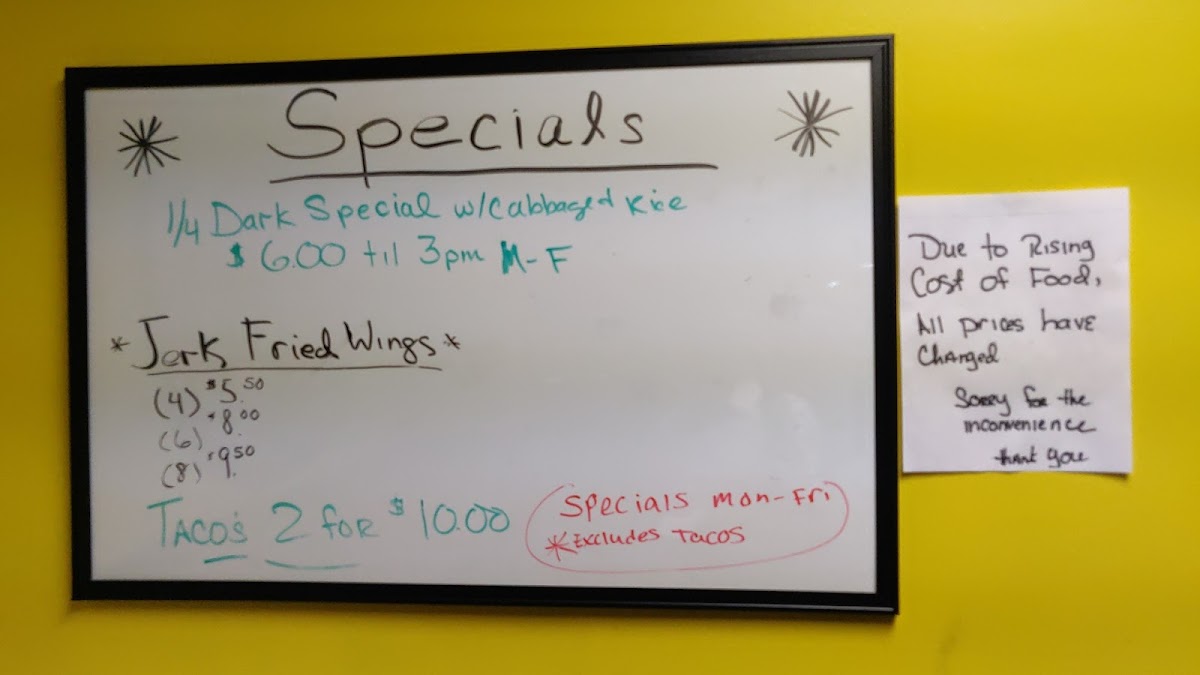 Specials
1/4 Dark Special w/Cabbage+ Rice
$6.00 til 3pm M-F
*Jerk Fried Wings*
(4) $5.50
(6) $8.00
(8) $9.50
Taco's 2 for $10.00
Specials Mon-Fri
*Excludes Tacos
Due to Rising
Cost of Food,
All prices have
Changed
Sorry for the
inconvenience
thank you